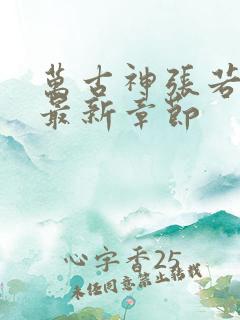 萬古神張若
最新章節
心字香25
未經同意禁止轉載